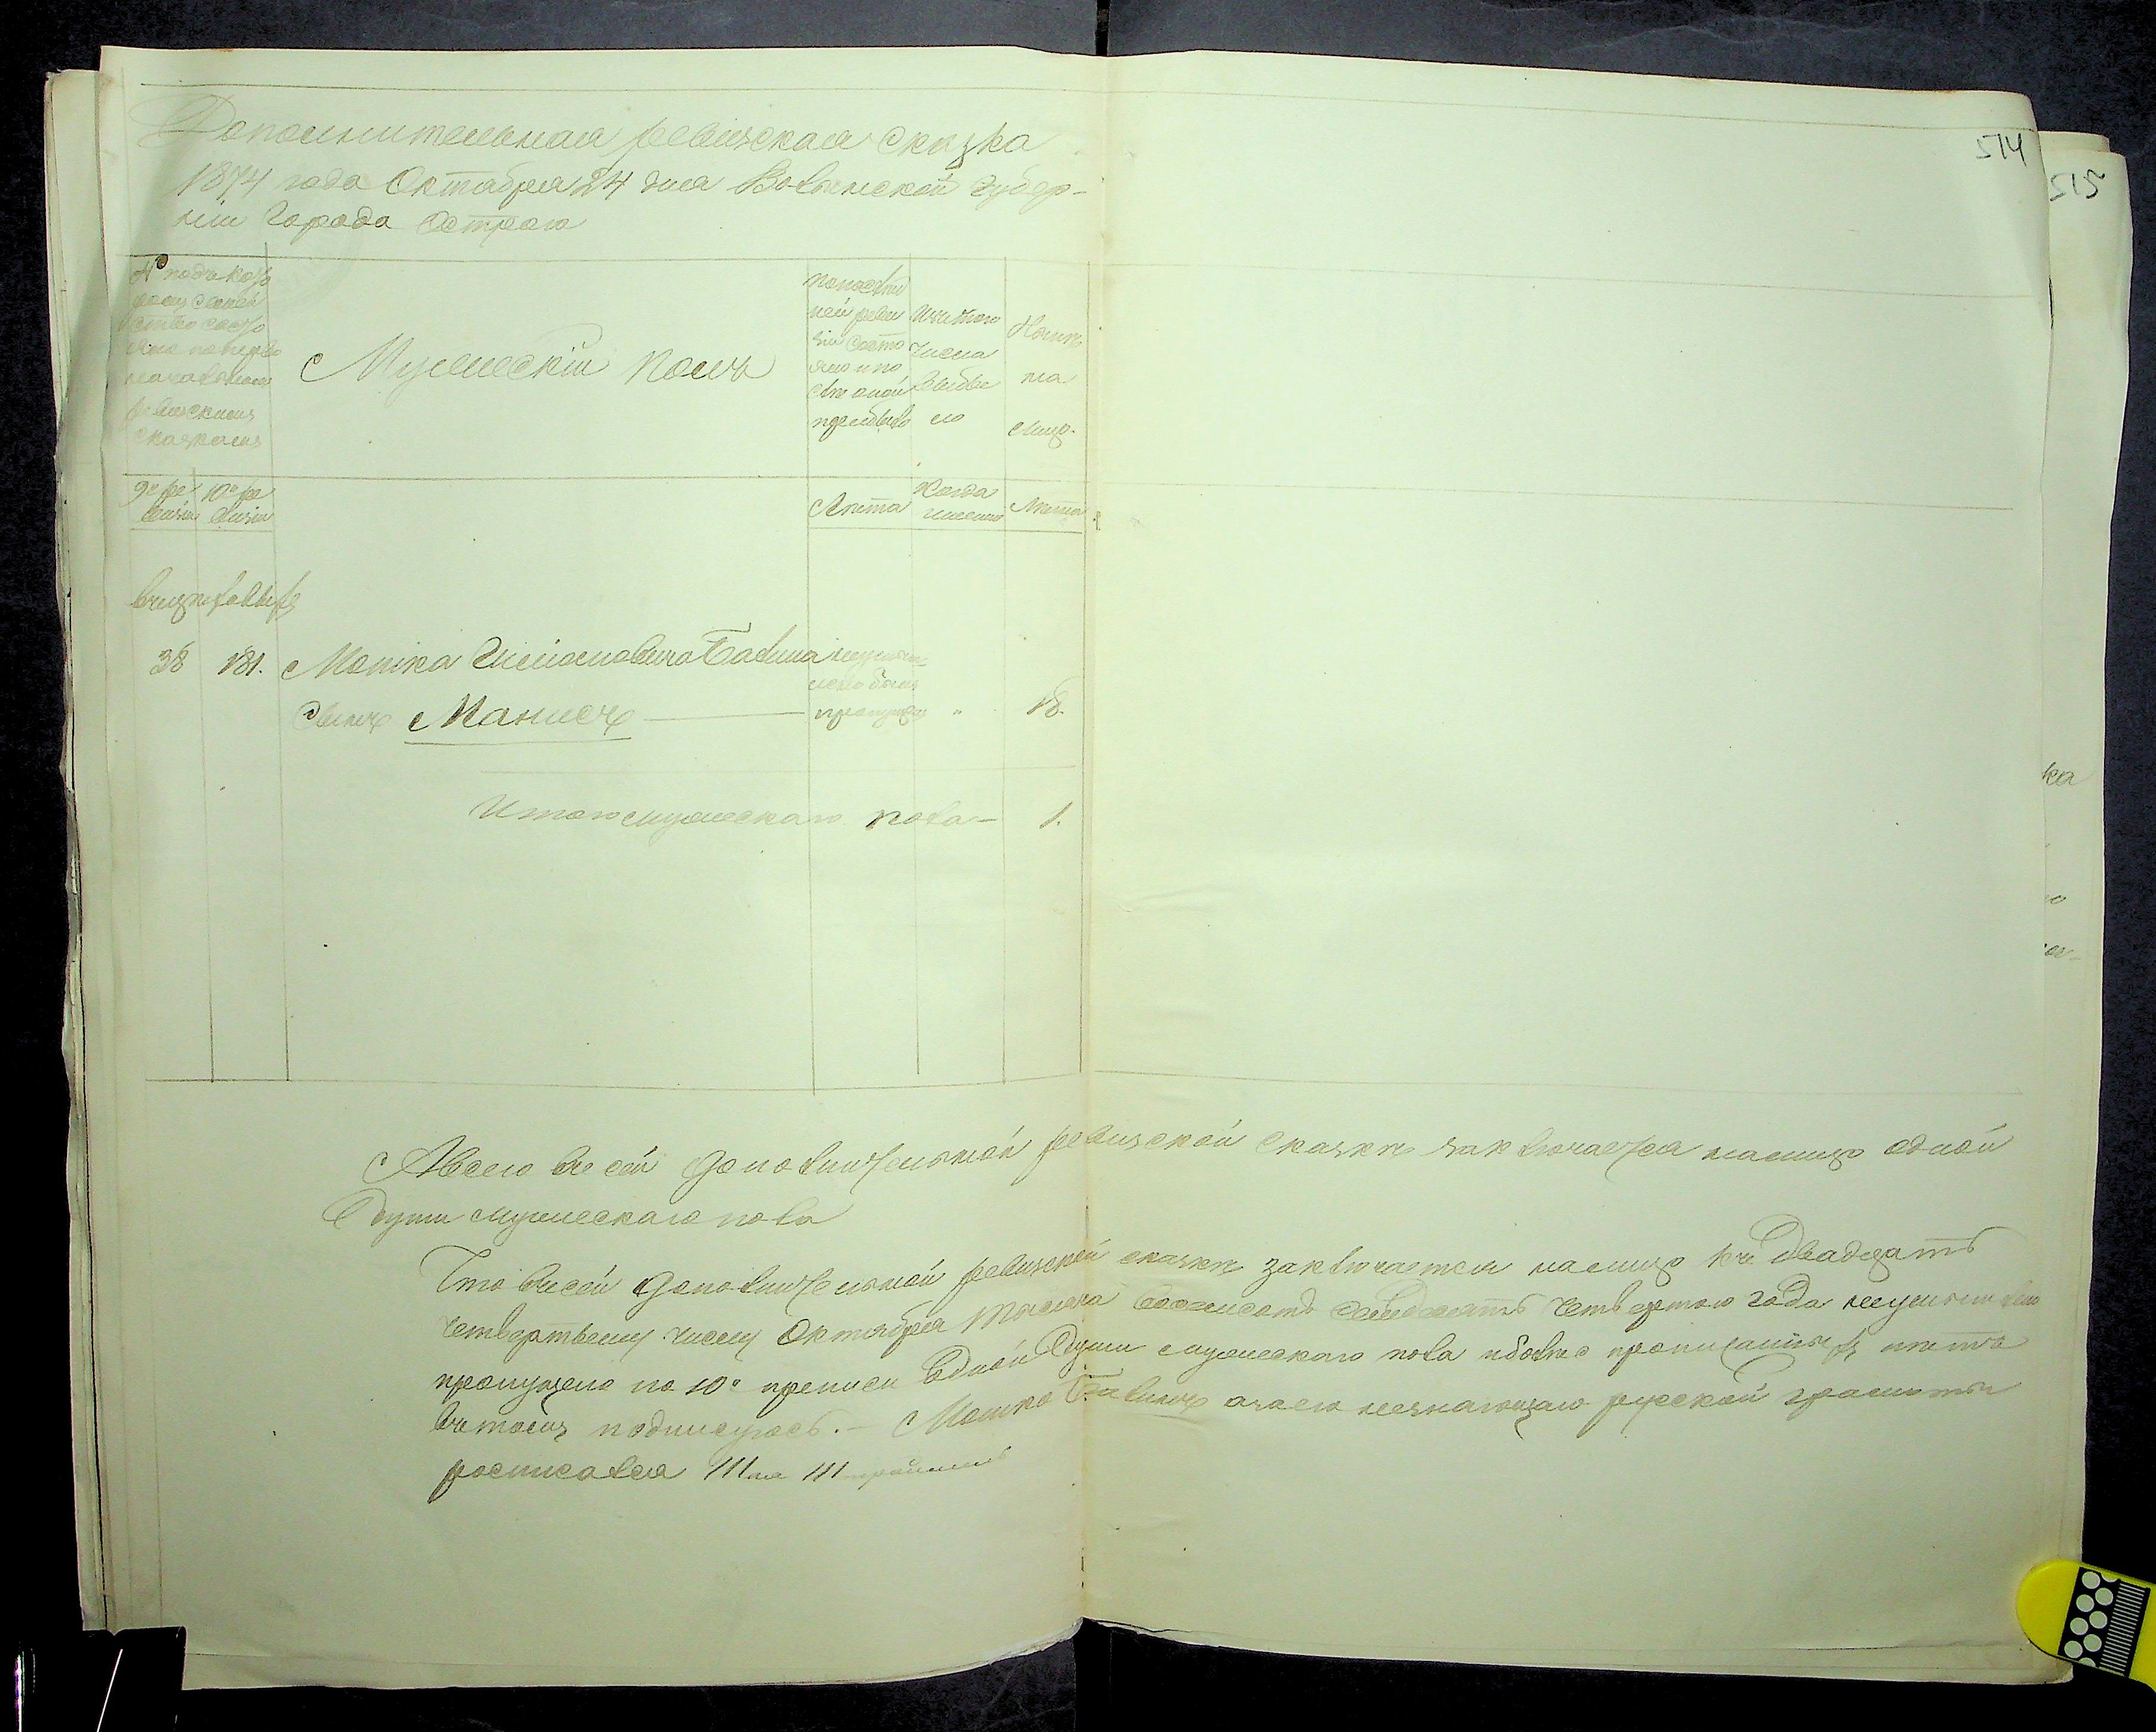 514
515
Дополнительная ревизская сказка
1874 года Октября 24 дня Волынской губер-
ніи города Острога
№ подъ кото
рымъ семей
ство состо
яло по перво
начальнымъ
ревизскимъ
сказкамъ
Мужескій полъ
По послѣд
ней реви
зіи состо
яло и по
слѣ оной
прибыло
Изъ того
числа
выбы
ло
Нынѣ
на
лицо.
9й ре
визіи
10й ре
визіи
Лѣта
Когда
именно
Лѣта
38 181. Мошка Баclина неумыш-
ленно былъ
сынъ Манисъ пропущенъ " 18.
Итого мужескаго пола – 1.
А всего въ сей дополнительной ревизской сказкѣ заключается налицо одной
души мужескаго пола
Что въ сей дополнительной ревизской сказкѣ заключается налицо къ двадцать
четвертому числу Октября тысяча восемьсотъ семьдесятъ четвертаго года неумышленно
пропущено по 10й переписи одной души мужескаго пола и болѣе прописныхъ нѣтъ
въ томъ подписуюсь. – Мошко а за его незнающаго русской грамоты
росписался
ка